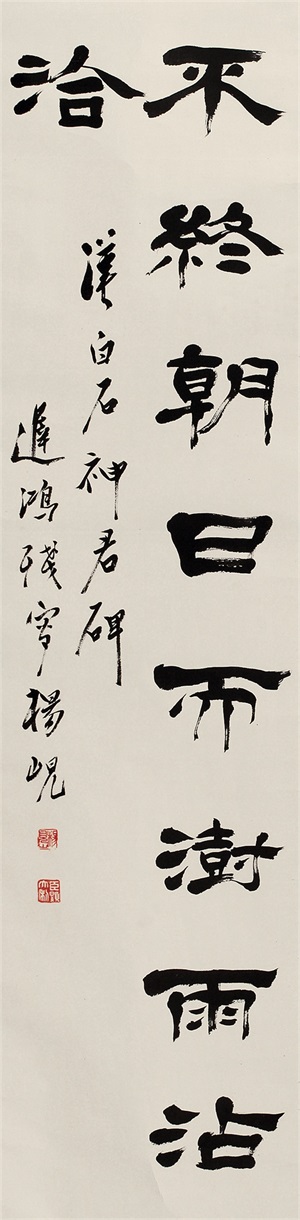 不終朝日而澍雨沾
洽
漢白石神君碑
遲鴻殘叟楊峴